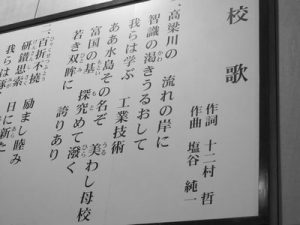 校歌
作詞 十二村 哲
作曲 塩谷 純一
一、高梁川の 流れの岸に
智識の渇きうるおして
我らは学ぶ 工業技術
ああ水島その名ぞ 美わし母校
富国の基 探究めて潑く
若き双眸に 誇りあり
二、百折不撓 励まし睦み
研鑽思索 日に新た
我らは